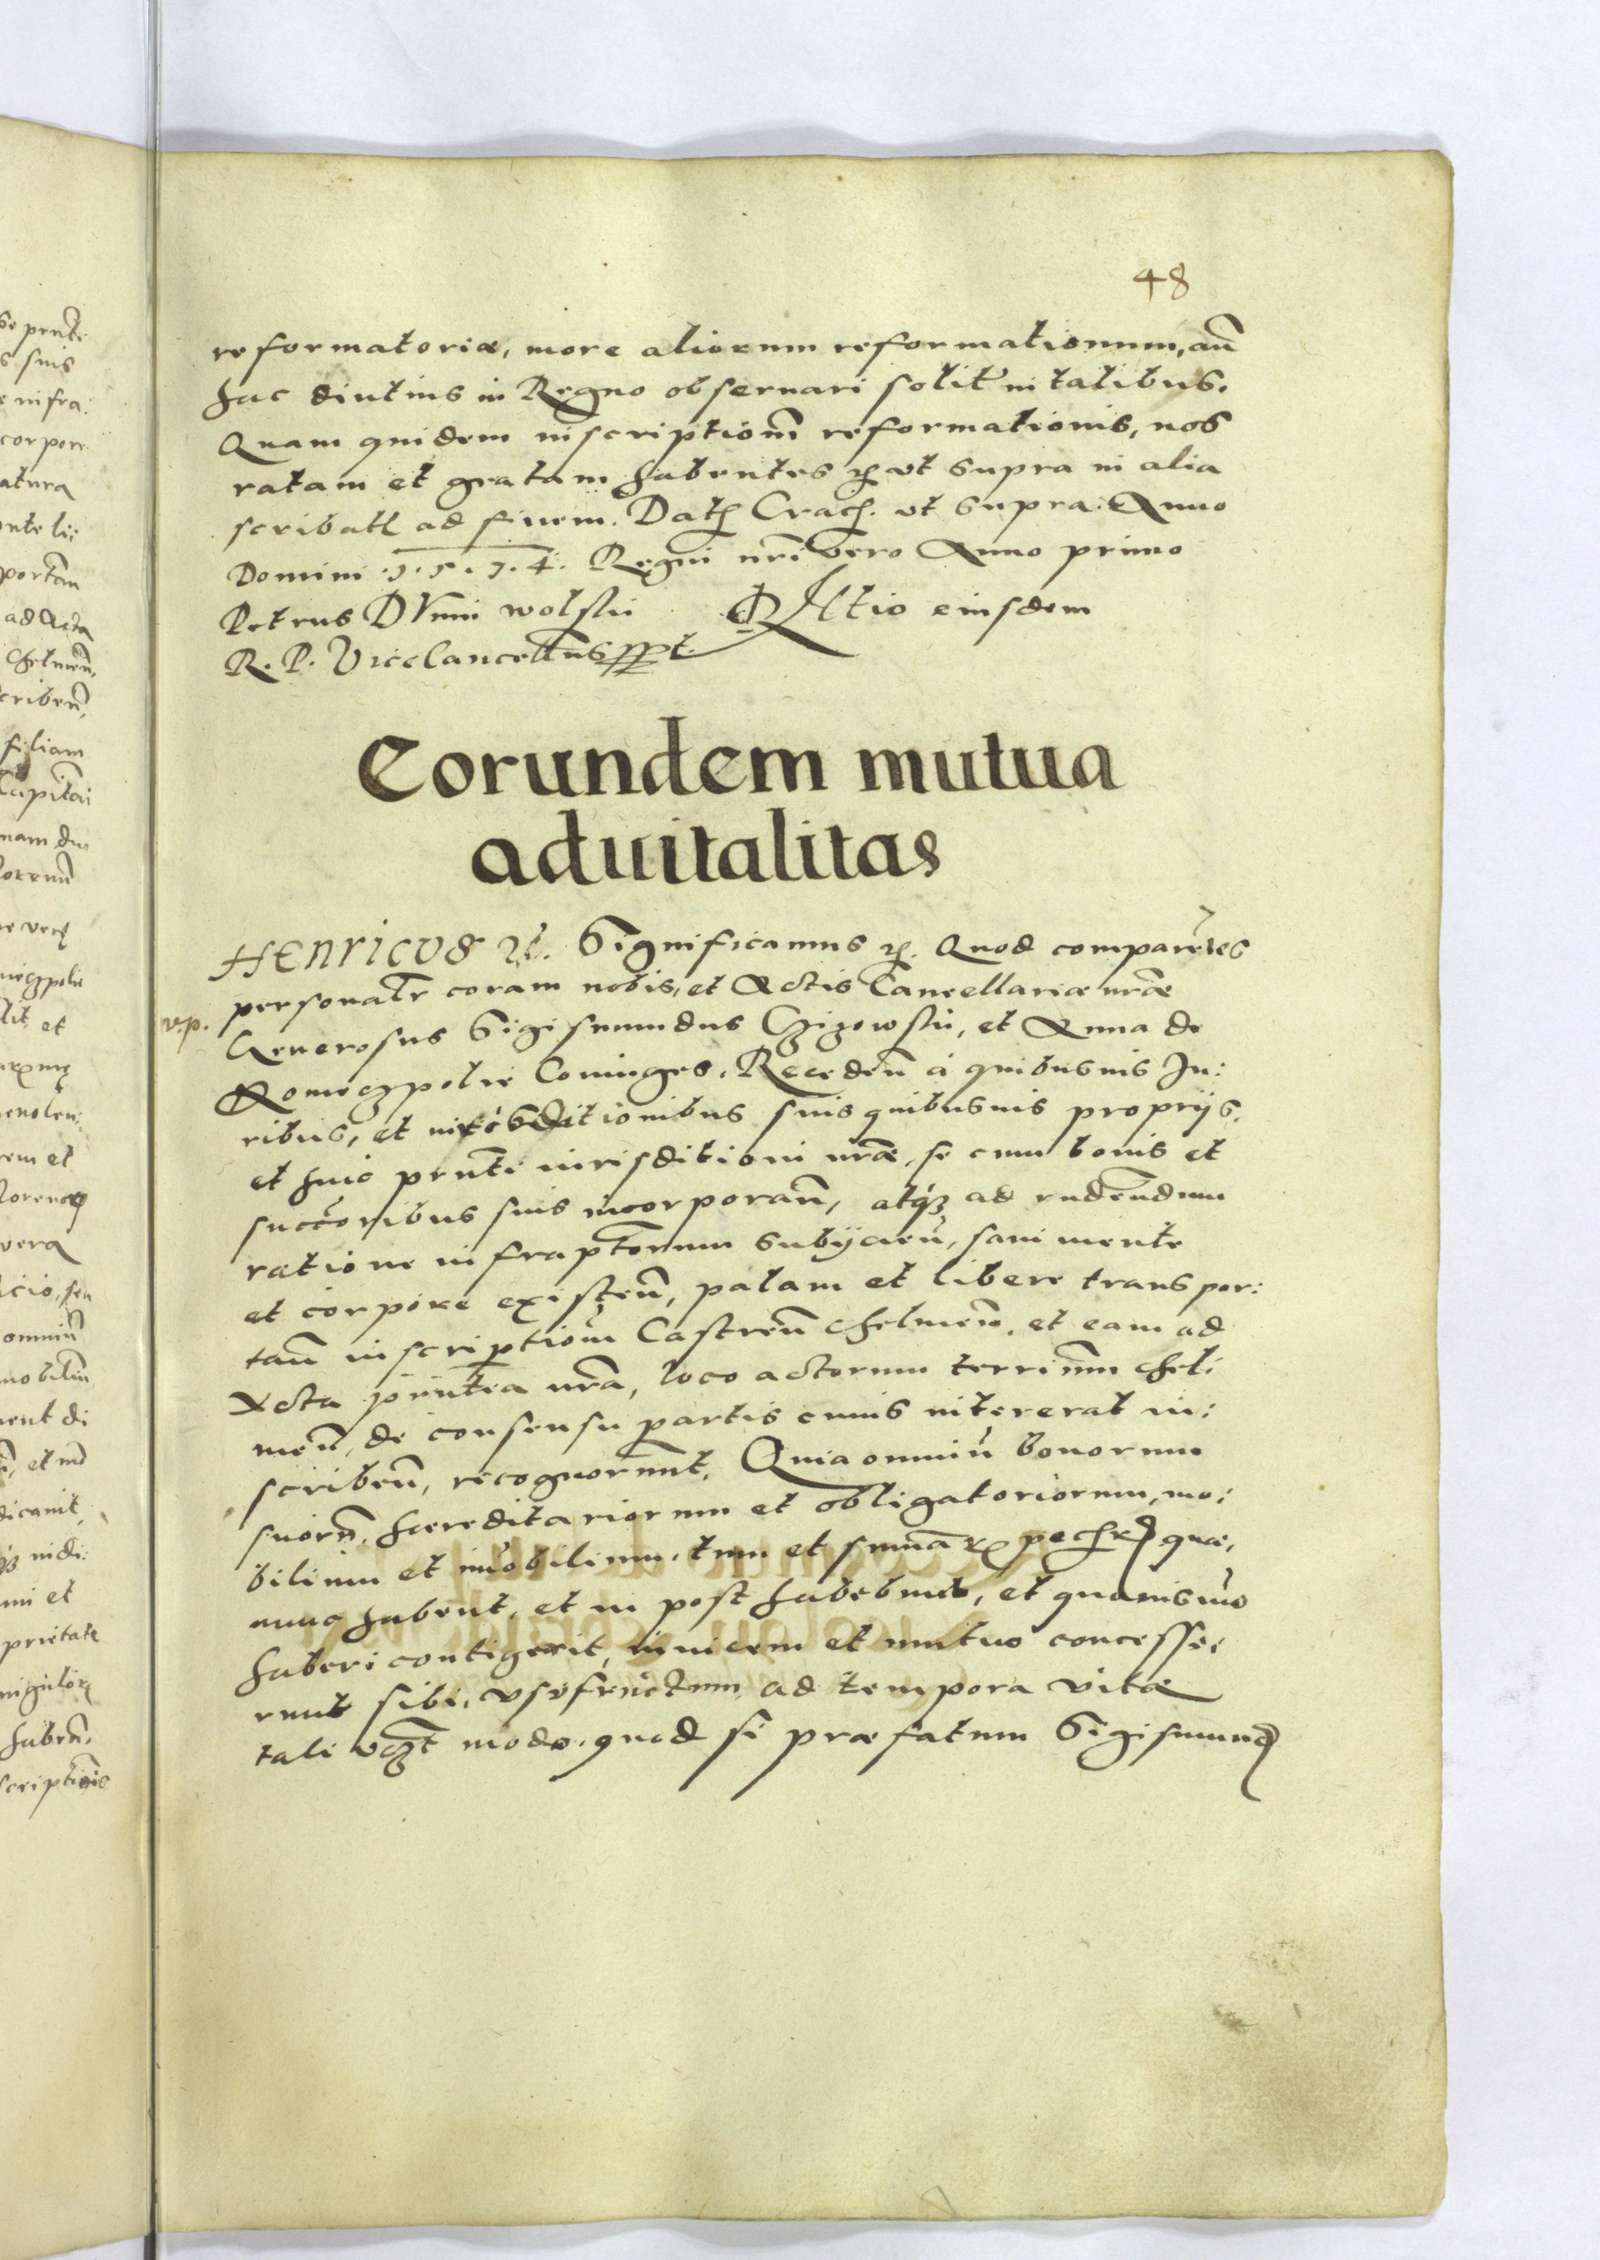 48
reformatoriæ, more aliorum reformationum, an͂
hac diutius in Regno obseruari solit͂ in talibus.
Quam quidem inscription͂ reformationis, nos
ratam et gratam habentes ut supra in alia
scribatl ad finem. Dat Crac. ut supra. Anno
Domini .1.5.7.4. Regni nr͂i vero Anno primo
Petrus Dunin wolski Rltio eiusdem
R. P. Vicecancellarius sspt.
Eorundem mutua
aduitalitas
HENRICVS etc. Significamus etc. Quod comparen͂tes
personalr͂ coram nobis, et Actis Cancellariæ nr͂æ
v.p.
Generosus Sigismundus Czizowski, et Anna de
Konieczpolie Coniuges. Receden͂ à quibusuis Iu:
ribus, et iurisditionibus suis quibusuis proprijs.
et huic pr͂nti iurisditioni nr͂æ, se cum bonis et
succ͂oribus suis incorporan͂, atq́ʒ ad eudendum
ratione infrapt͂orum subijcien͂, sani mente
et corpore existen͂, palam et libere transpor:
tan͂ inscription͂ Castren͂ Chelmen͂, et eam ad
Acta pr͂ntia nr͂a, loco actorum terrium͂ Chel:
men͂, de consensu partis cuius intererat in:
scriben͂, recognorunt͂. Quia omniu͂ bonorum
suorn͂, hæreditariorum et obligatoriorum, mo:
bilium et im͂obilium, tum et sum͂ar pech quæ,
nunc habent, et in post habebunt, et quouismo͂
haberi contigerit, inuicem et mutuo concesse:
runt sibi, vsufructum ad tempora vitæ
tali vcʒt modo, quod si præfatum Sigismund